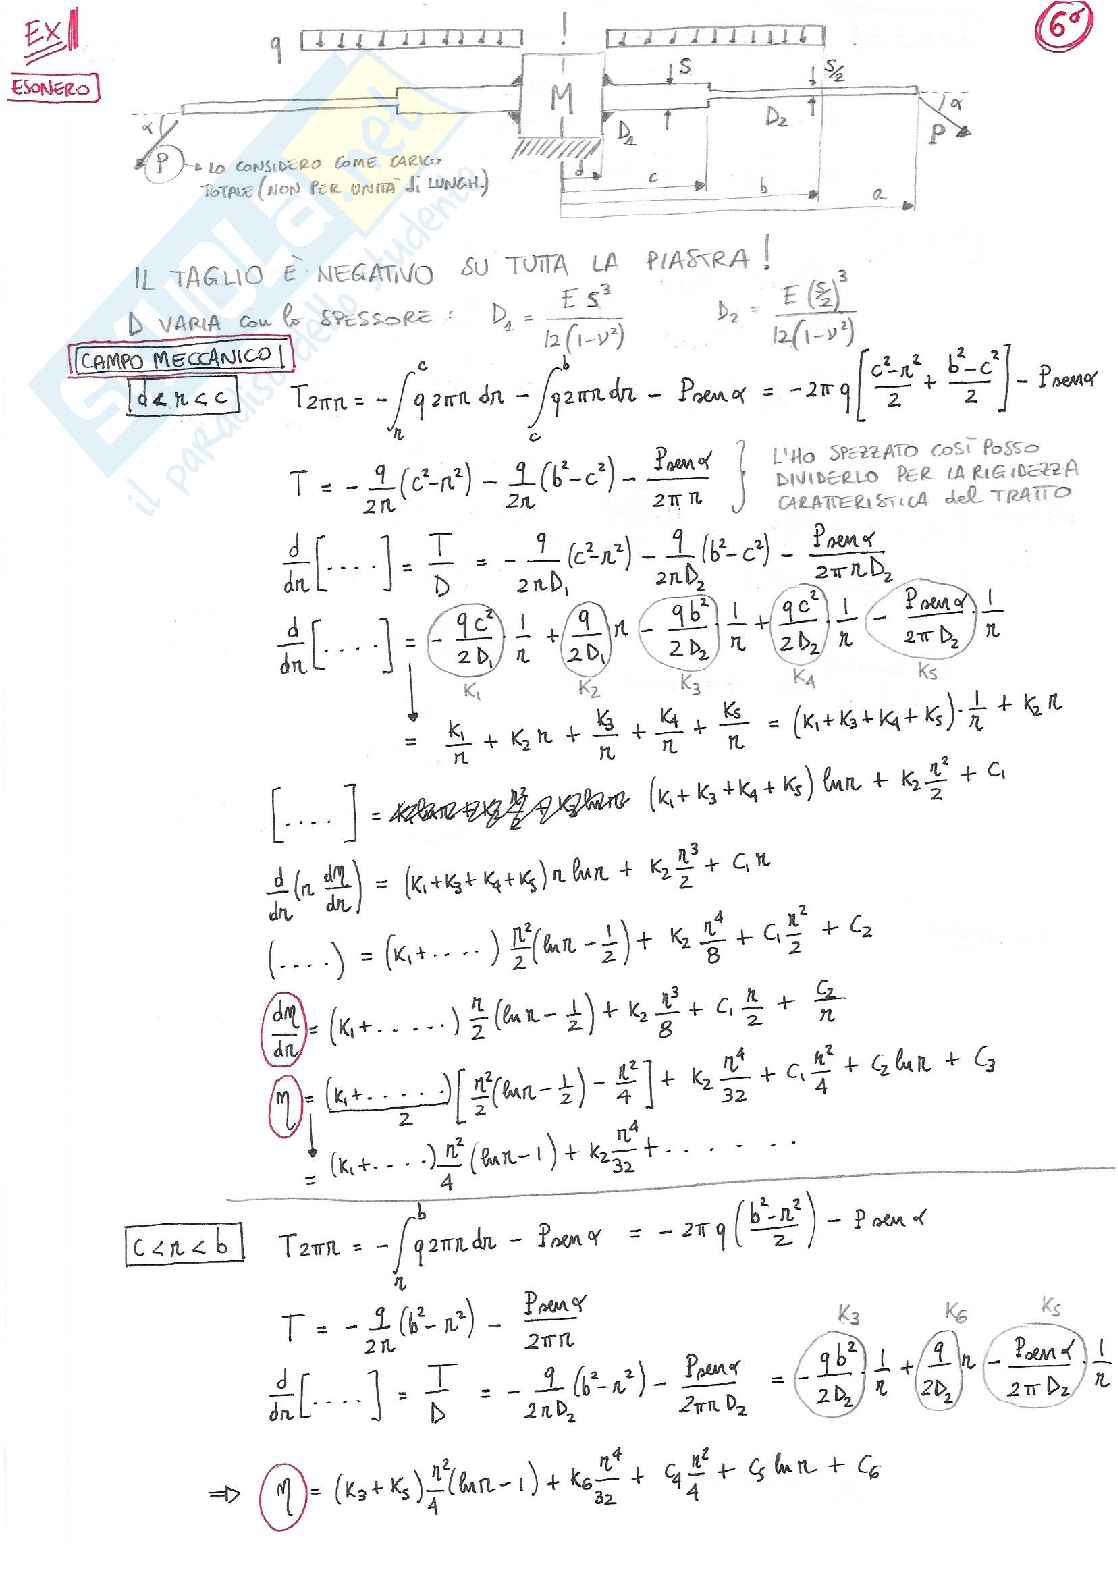 EX 1
6ª
ESONERO
q
M
S
S/2
D₁
D₂
α
P
α
P
d
c
b
a
LO CONSIDERO COME CARICO
TOTALE (NON PER UNITÀ di LUNGH.)
IL TAGLIO È NEGATIVO SU TUTTA LA PIASTRA!
D VARIA con lo SPESSORE: D₁ = E S³ / 12(1-ν²) D₂ = E (S/2)³ / 12(1-ν²)
CAMPO MECCANICO
d<r<c T2πr = -∫_r^c q2πr dr - ∫_c^b q2πr dr - P sen α = -2πq [ (c²-r²)/2 + (b²-c²)/2 ] - P sen α
T = - q/2r (c²-r²) - q/2r (b²-c²) - P sen α / 2πr
L'HO SPEZZATO COSÌ POSSO
DIVIDERLO PER LA RIGIDEZZA
CARATTERISTICA del TRATTO
d/dr [....] = T/D = - q/2rD₁ (c²-r²) - q/2rD₂ (b²-c²) - P sen α / 2πrD₂
d/dr [....] = - qc²/2D₁ · 1/r + q/2D₁ r - qb²/2D₂ · 1/r + qc²/2D₂ · 1/r - P sen α / 2πD₂ · 1/r
K₁ K₂ K₃ K₄ K₅
= K₁/r + K₂ r + K₃/r + K₄/r + K₅/r = (K₁+K₃+K₄+K₅)· 1/r + K₂ r
[....] = (K₁+K₃+K₄+K₅) ln r + K₂ r²/2 + C₁
d/dr (r dη/dr) = (K₁+K₃+K₄+K₅) r ln r + K₂ r³/2 + C₁ r
(....) = (K₁+....) r²/2 (ln r - 1/2) + K₂ r⁴/8 + C₁ r²/2 + C₂
dη/dr = (K₁+.....) r/2 (ln r - 1/2) + K₂ r³/8 + C₁ r/2 + C₂/r
η = (K₁+.....)/2 [ r²/2 (ln r - 1/2) - r²/4 ] + K₂ r⁴/32 + C₁ r²/4 + C₂ ln r + C₃
= (K₁+....) r²/4 (ln r - 1) + K₂ r⁴/32 + . . . . . .
C<r<b T2πr = -∫_r^b q2πr dr - P sen α = -2πq ( (b²-r²)/2 ) - P sen α
T = - q/2r (b²-r²) - P sen α / 2πr
K₃ K₆ K₅
d/dr [....] = T/D = - q/2rD₂ (b²-r²) - P sen α / 2πrD₂ = - qb²/2D₂ · 1/r + q/2D₂ r - P sen α / 2πD₂ · 1/r
⇒ η = (K₃+K₅) r²/4 (ln r - 1) + K₆ r⁴/32 + C₄ r²/4 + C₅ ln r + C₆
SKUOLA.net
il paradiso dello studente